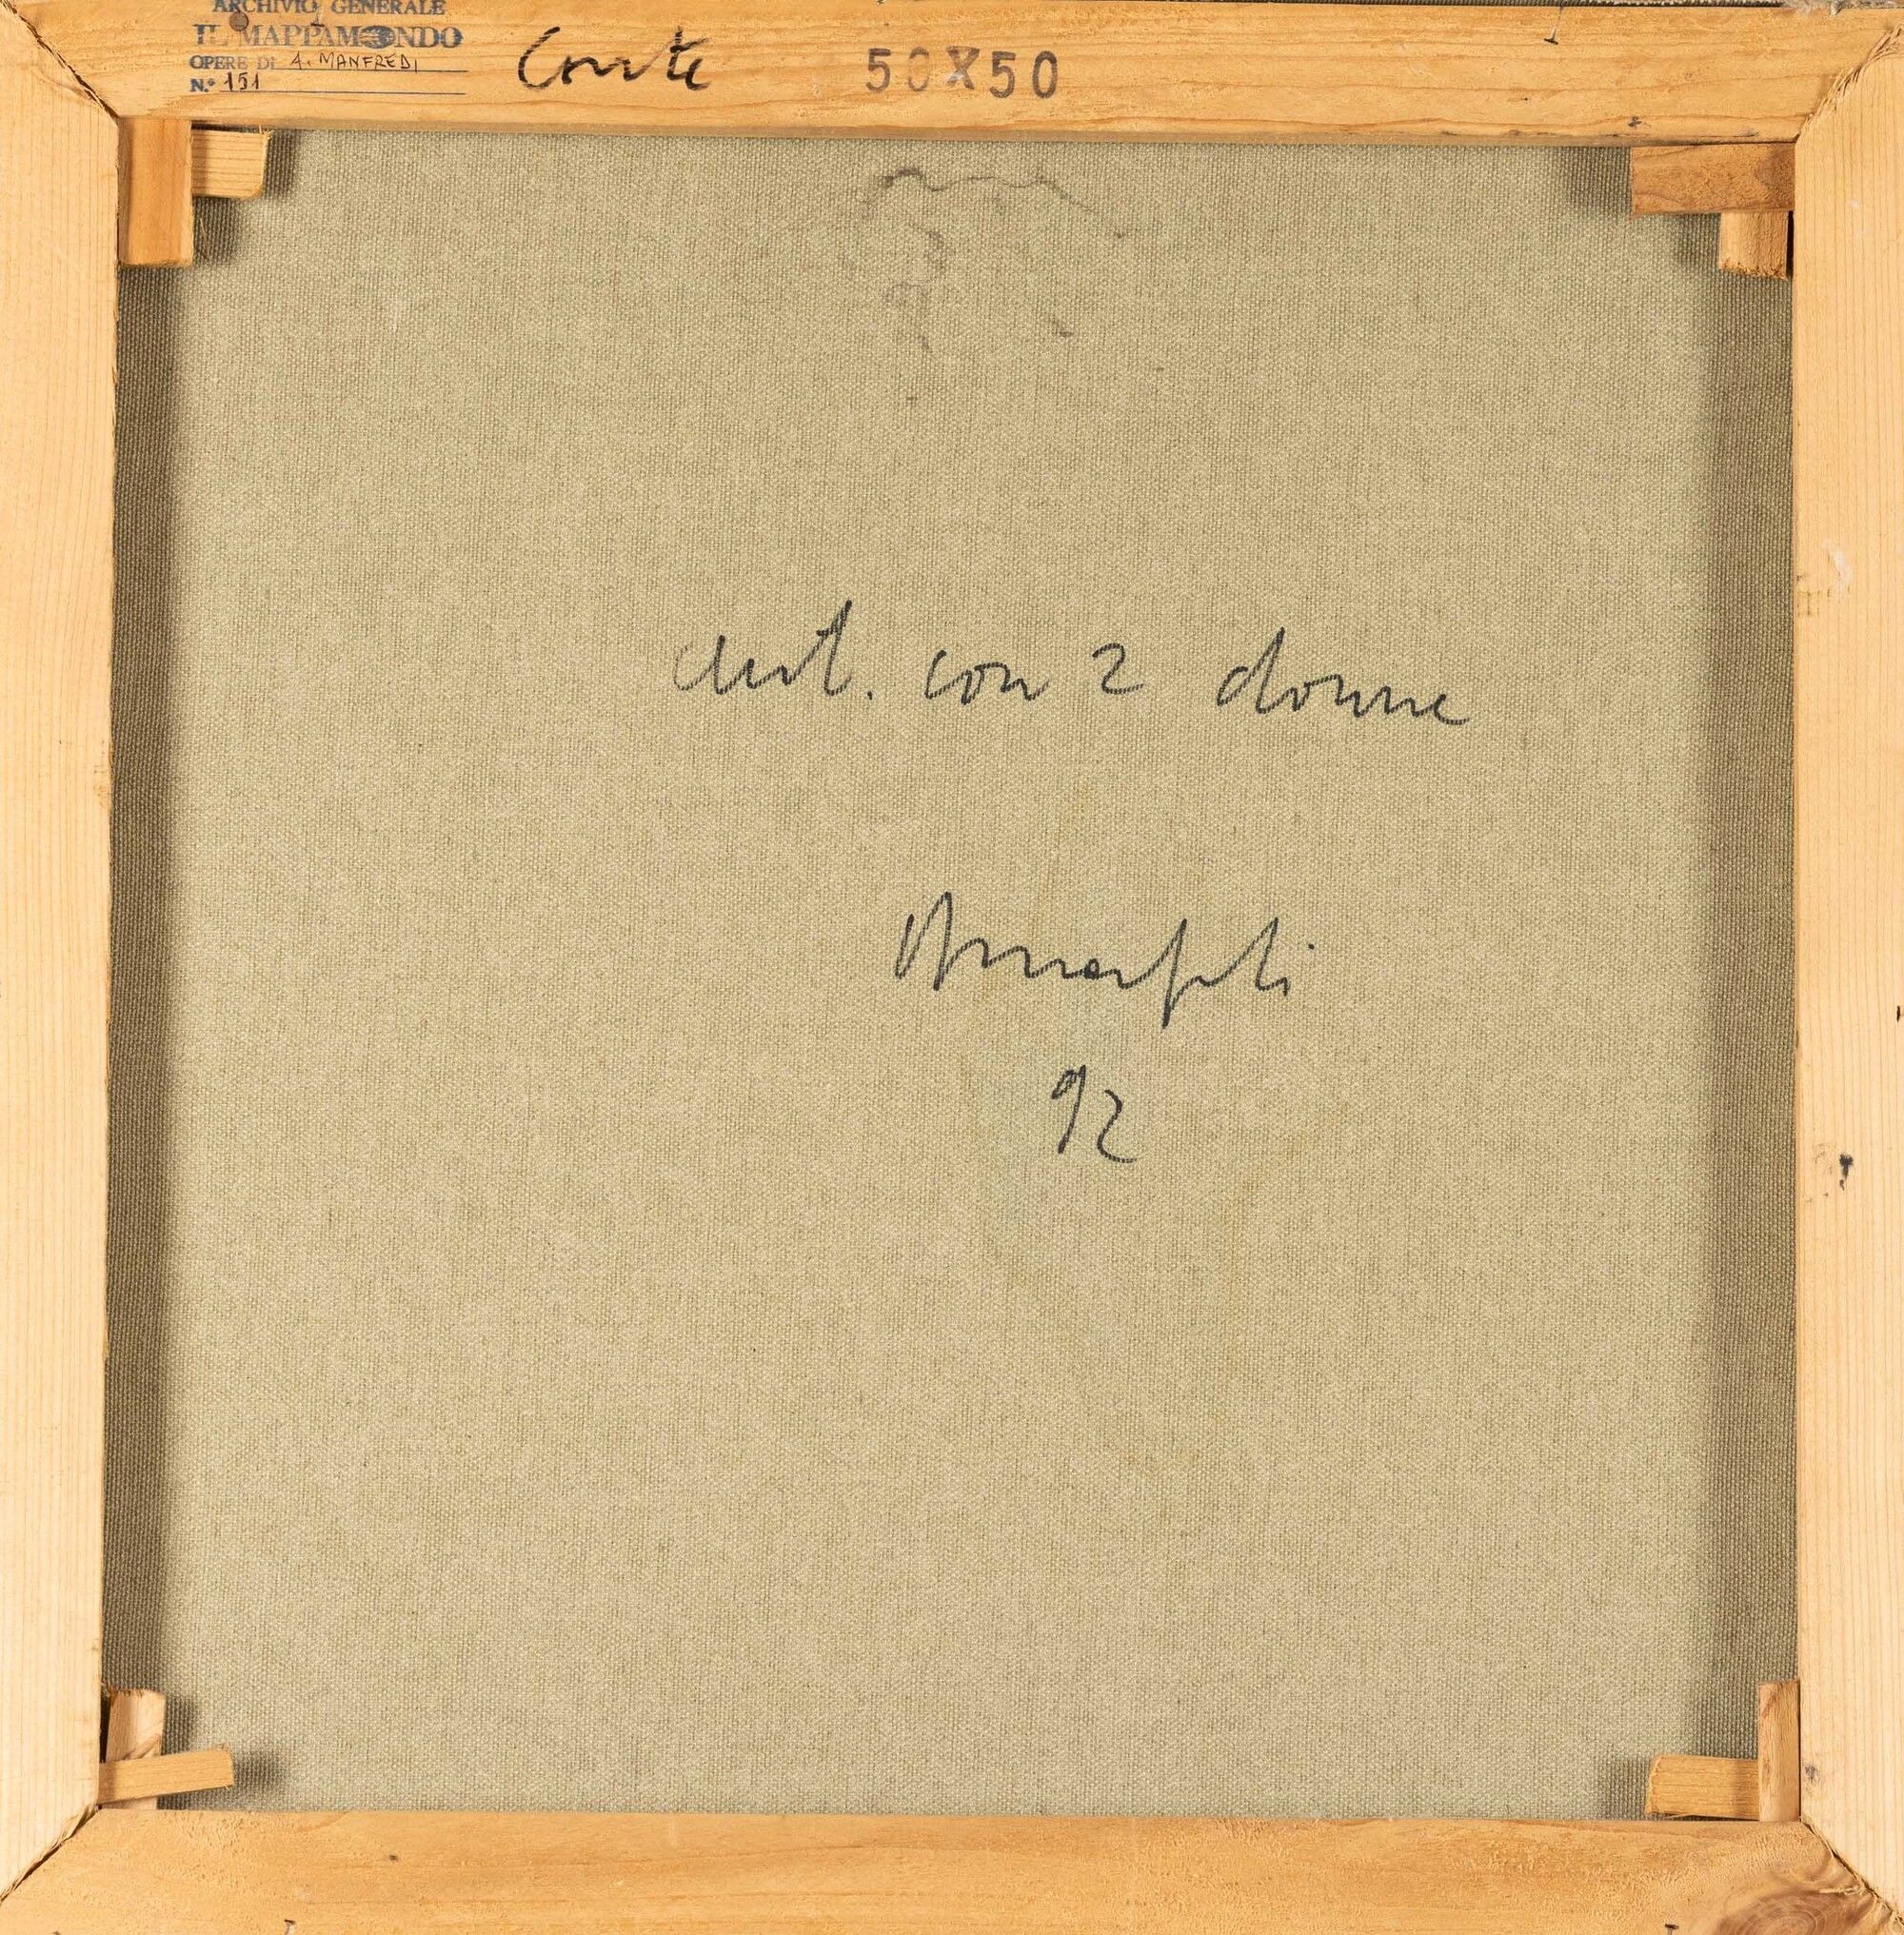 ARCHIVIO GENERALE
IL MAPPAMONDO
OPERE DI A. MANFREDI
N.° 151
50X50
con 2 donne
92